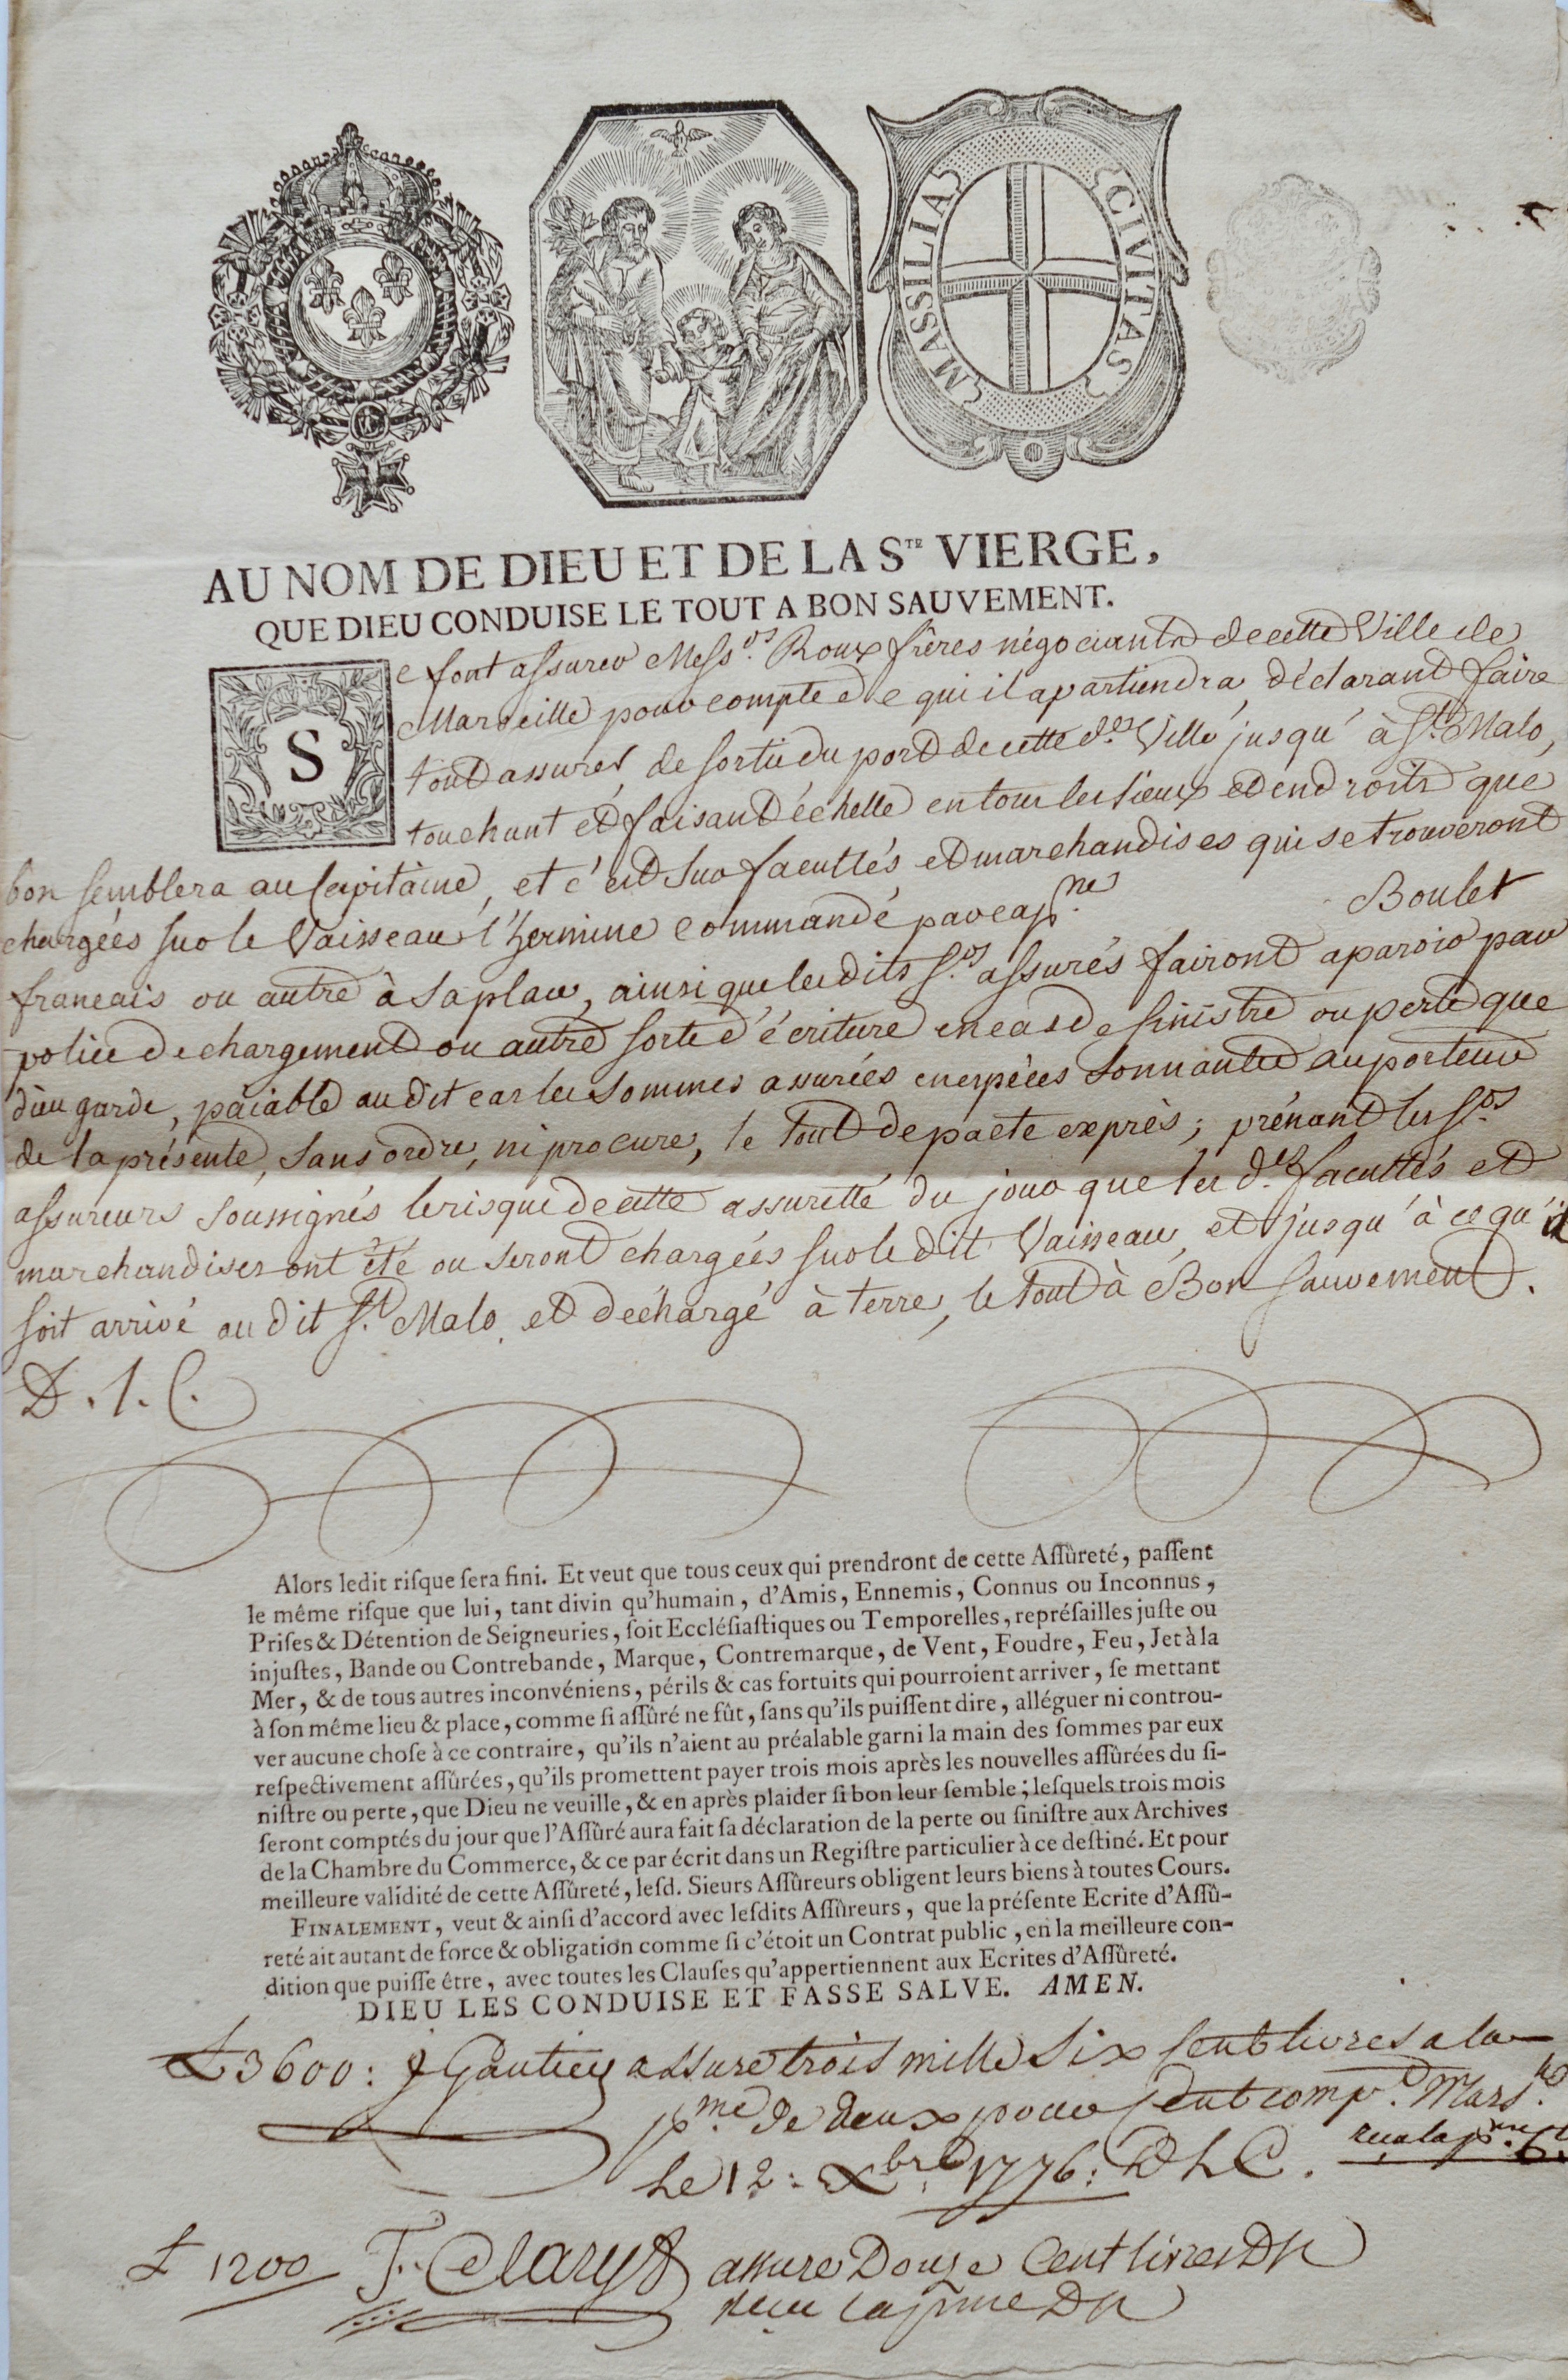 MASSILIA CIVITAS
AU NOM DE DIEU ET DE LA S.TE VIERGE,
QUE DIEU CONDUISE LE TOUT A BON SAUVEMENT.
Se font assurer Mess.rs Roux frères négociants de cette Ville de
Marseille pour compte de qui il apartiendra, déclarant faire
tout assurer, de sortie du port de cette d.te Ville jusqu'à S.t Malo,
touchant et faisant échelle en tous les lieux et endroits que
bon semblera au Capitaine, et c'est sur facultés et marchandises qui se trouveront
chargées sur le Vaisseau l'hermine commandé par cap.ne Boulet
francais ou autre à sa place, ainsi que lesdits S.rs assurés fairont aparoir par
police de chargement ou autre sorte d'écriture en cas de sinistre ou perte que
dieu garde, païable audit cas les sommes assurées en espèces sonnantes au porteur
de la présente, sans ordre, ni procure, le tout de pacte exprès; prénant les S.rs
assureurs soussignés le risque de cette assuretté du jour que les d.tes facultés et
marchandises ont été ou seront chargées sur le dit Vaisseau, et jusqu'à ce qu'il
soit arrivé au dit S.t Malo, et déchargé à terre, le tout à Bon sauvement.
D. l. C.
Alors ledit risque sera fini. Et veut que tous ceux qui prendront de cette Assûreté, passent
le même risque que lui, tant divin qu'humain, d'Amis, Ennemis, Connus ou Inconnus,
Prises & Détention de Seigneuries, soit Ecclésiastiques ou Temporelles, représailles juste ou
injustes, Bande ou Contrebande, Marque, Contremarque, de Vent, Foudre, Feu, Jet à la
Mer, & de tous autres inconvéniens, périls & cas fortuits qui pourroient arriver, se mettant
à son même lieu & place, comme si assûré ne fût, sans qu'ils puissent dire, alléguer ni controu-
ver aucune chose à ce contraire, qu'ils n'aient au préalable garni la main des sommes par eux
respectivement assûrées, qu'ils promettent payer trois mois après les nouvelles assûrées du si-
nistre ou perte, que Dieu ne veuille, & en après plaider si bon leur semble; lesquels trois mois
seront comptés du jour que l'Assûré aura fait sa déclaration de la perte ou sinistre aux Archives
de la Chambre du Commerce, & ce par écrit dans un Registre particulier à ce destiné. Et pour
meilleure validité de cette Assûreté, lesd. Sieurs Assûreurs obligent leurs biens à toutes Cours.
FINALEMENT, veut & ainsi d'accord avec lesdits Assûreurs, que la présente Ecrite d'Assû-
reté ait autant de force & obligation comme si c'étoit un Contrat public, en la meilleure con-
dition que puisse être, avec toutes les Clauses qu'appertiennent aux Ecrites d'Assûreté.
DIEU LES CONDUISE ET FASSE SALVE. AMEN.
£ 3600: J Gautier assure trois mille Six Cent livres a la
p.me de deux pour Cent comp.t Mars.lle
Le 12: Xbre 1776: D L C. reçu la p.me
£ 1200 F. Clary assure Douze Cent livres Dit
recu la prime Dit